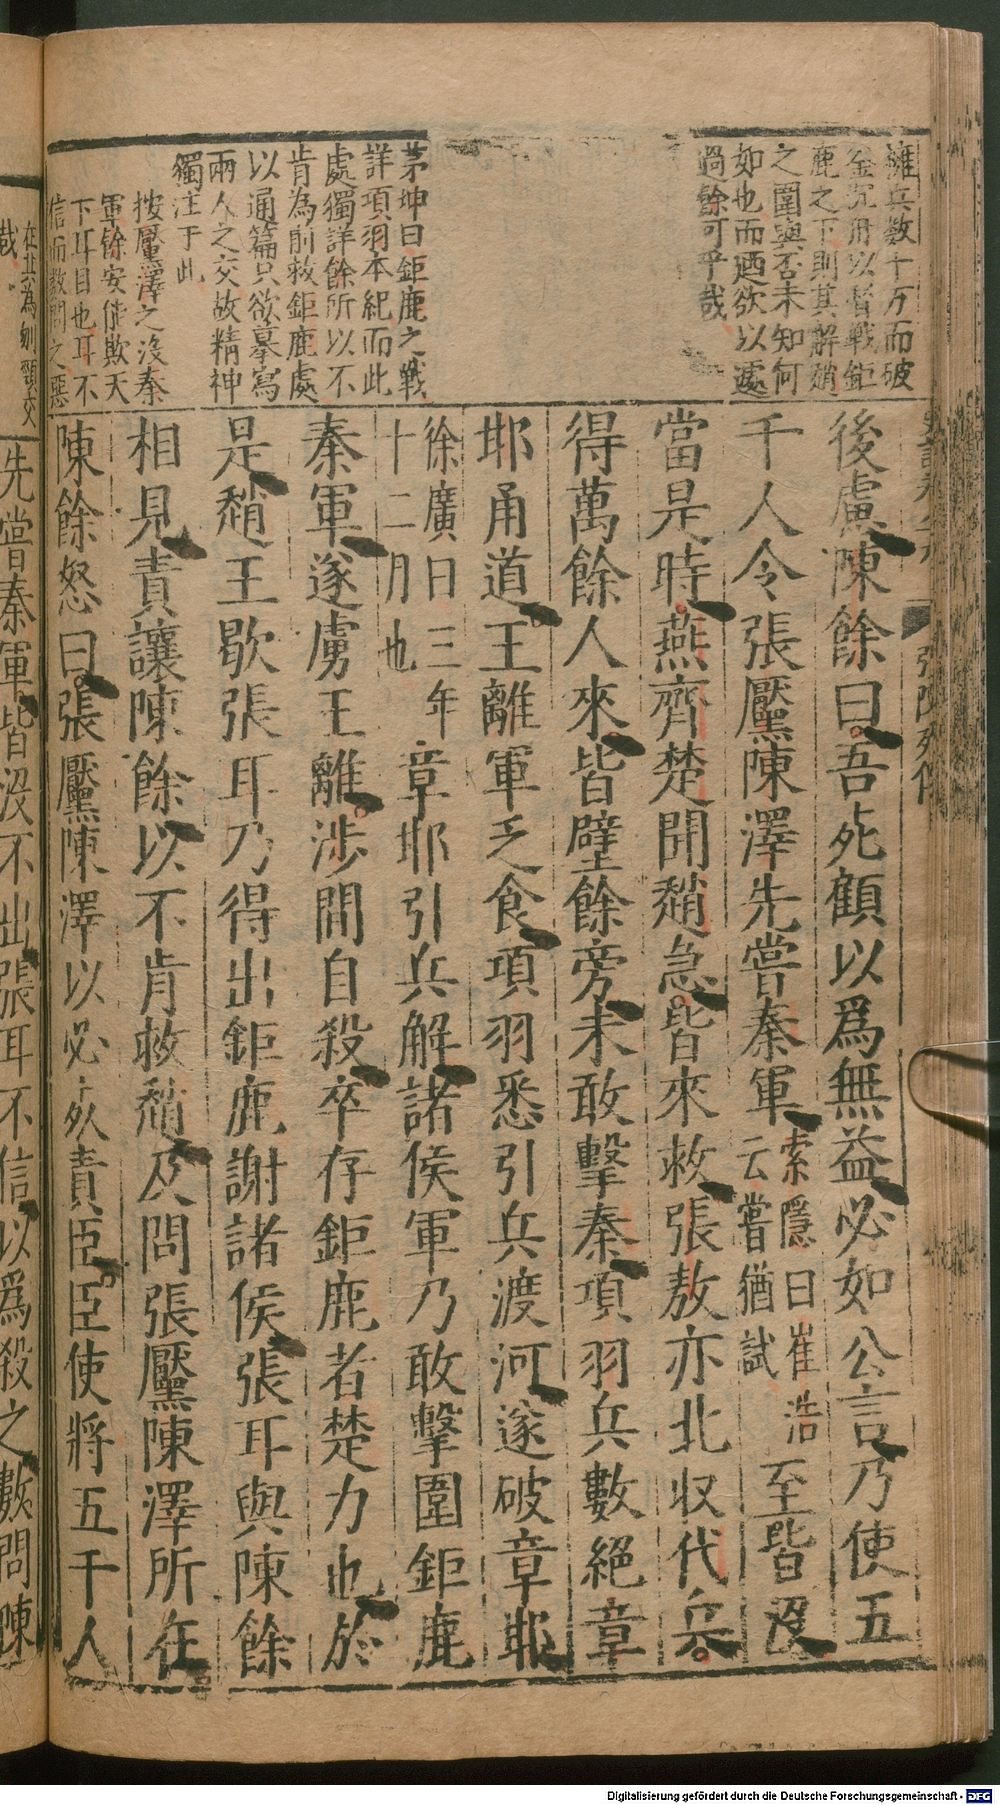 擁兵数十万而破
釜沉舟以督戰鉅
鹿之下則其解趙
之圍與否未知何
如也而廼欲以遽
過餘可乎哉
茅坤曰鉅鹿之戰
詳項羽本紀而此
處獨詳餘所以不
肯為前救鉅鹿處
以通篇只欲摹寫
兩人之交故精神
獨注于此
按黶澤之沒秦
軍餘安能欺天
下耳目也耳不
信而數問之惡
在其為刎頸交
哉
張陳列傳
後慮陳餘曰吾死顧以爲無益必如公言乃使五
千人令張黶陳澤先嘗秦軍
索隱曰崔浩
云嘗猶試
至皆沒
當是時燕齊楚聞趙急皆來救張敖亦北収代兵
得萬餘人來皆壁餘旁未敢擊秦項羽兵數絕章
耶甬道王離軍乏食項羽悉引兵渡河遂破章耶
徐廣曰三年
十二月也
章耶引兵解諸侯軍乃敢擊圍鉅鹿
秦軍遂虜王離涉間自殺卒存鉅鹿者楚力也於
是趙王歇張耳乃得出鉅鹿謝諸侯張耳與陳餘
相見責讓陳餘以不肯救趙及問張黶陳澤所在
陳餘怒曰張黶陳澤以必死責臣臣使將五千人
先嘗秦軍皆沒不出張耳不信以爲殺之數問陳
Digitalisierung gefördert durch die Deutsche Forschungsgemeinschaft - DFG